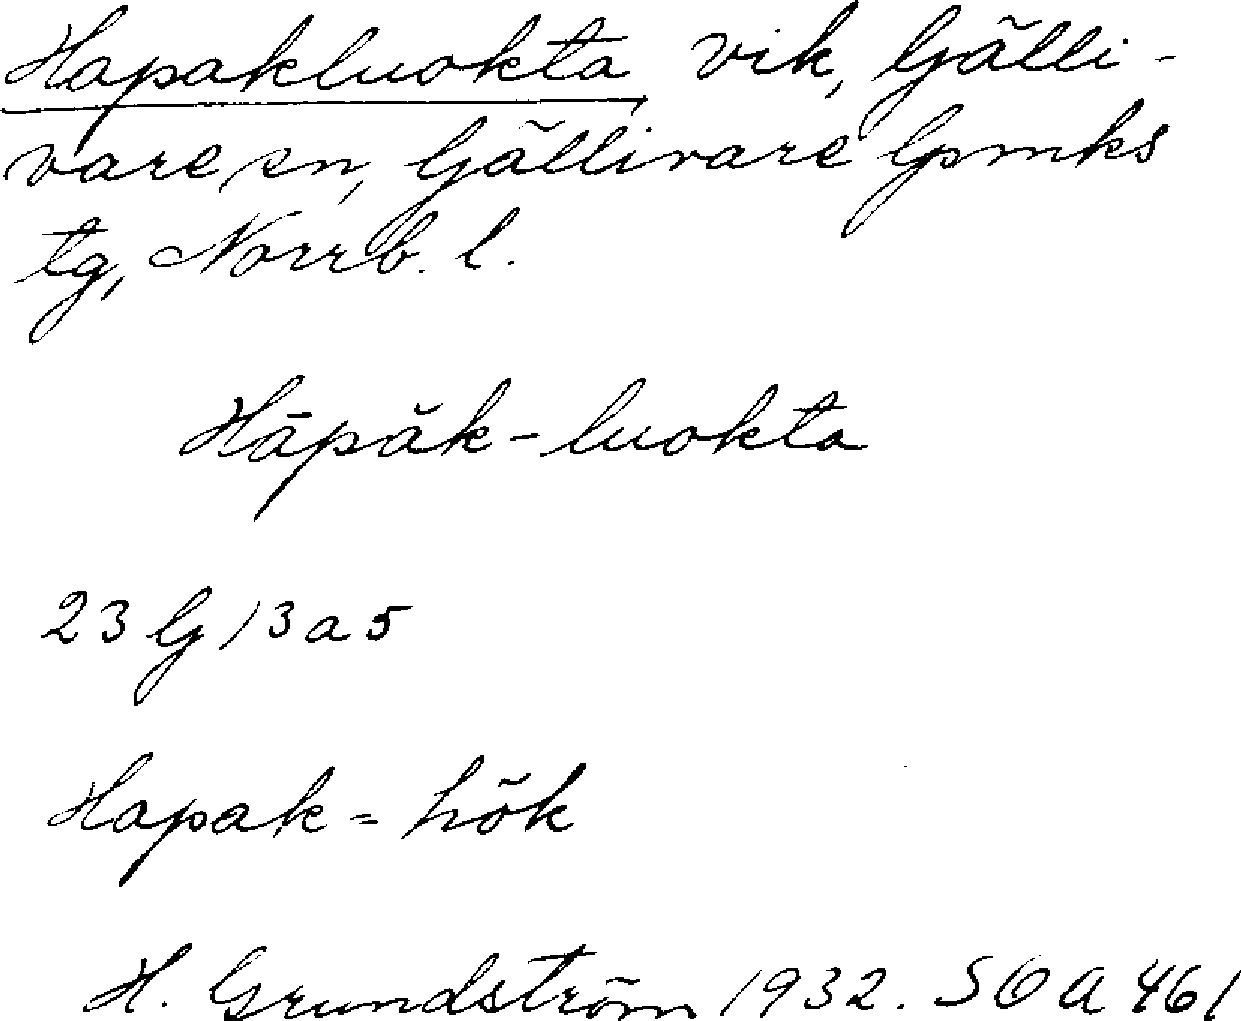 Hapakluokta vik, Gälli-
vare sn, Gällivare lpmks
tg, Norrb. l.
Hāpǎk-luokta
23 G 13 a 5
Hapak = hök
H. Grundström 1932. SOA 461